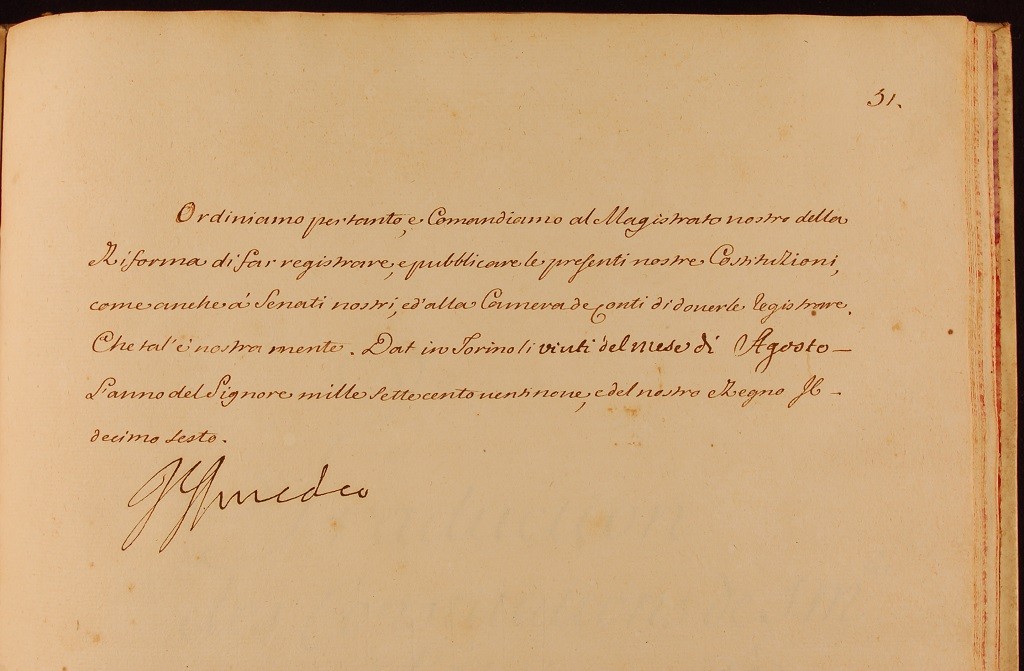 51.
Ordiniamo pertanto, e Comandiamo al Magistrato nostro della
Riforma di far registrare, e pubblicare le presenti nostre Costituzioni,
come anche a' Senati nostri, ed' alla Camera de Conti di doverle registrare.
Che tal' é nostra mente. Dat in Torino li vinti del mese di Agosto —
L'anno del Signore mille sette cento ventinove, e del nostro Regno Il —
decimo sesto.
V Amedeo